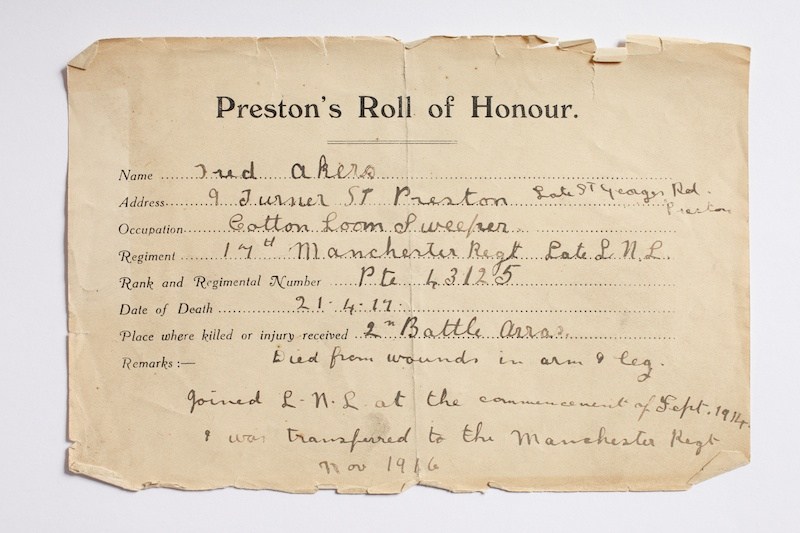 Preston's Roll of Honour.
Name Fred Akers
Address 9 Turner St Preston Late St Georges Rd. Preston
Occupation Cotton Loom Sweeper
Regiment 17th Manchester Regt Late L N.L.
Rank and Regimental Number Pte 43125
Date of Death 21. 4. 17.
Place where killed or injury received 2n Battle Arras.
Remarks:— Died from wounds in arm & leg.
Joined L.N.L. at the commencement of Sept. 1914.
& was transferred to the Manchester Regt
Nov 1916